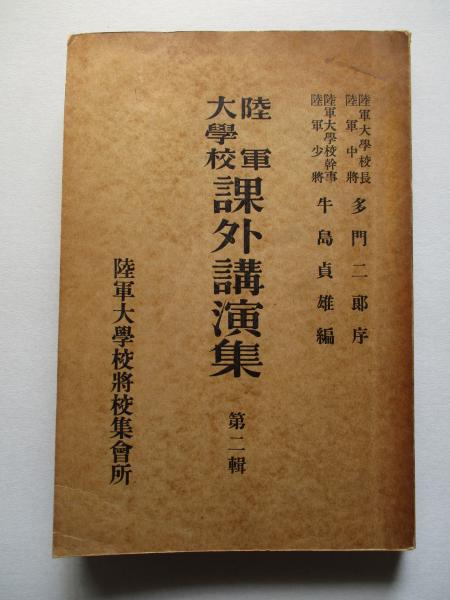 陸軍大學校長
陸軍中將
多門二郞序
陸軍大學校幹事
陸軍少將
牛島貞雄編
陸軍
大學校
課外講演集
第二輯
陸軍大學校將校集會所